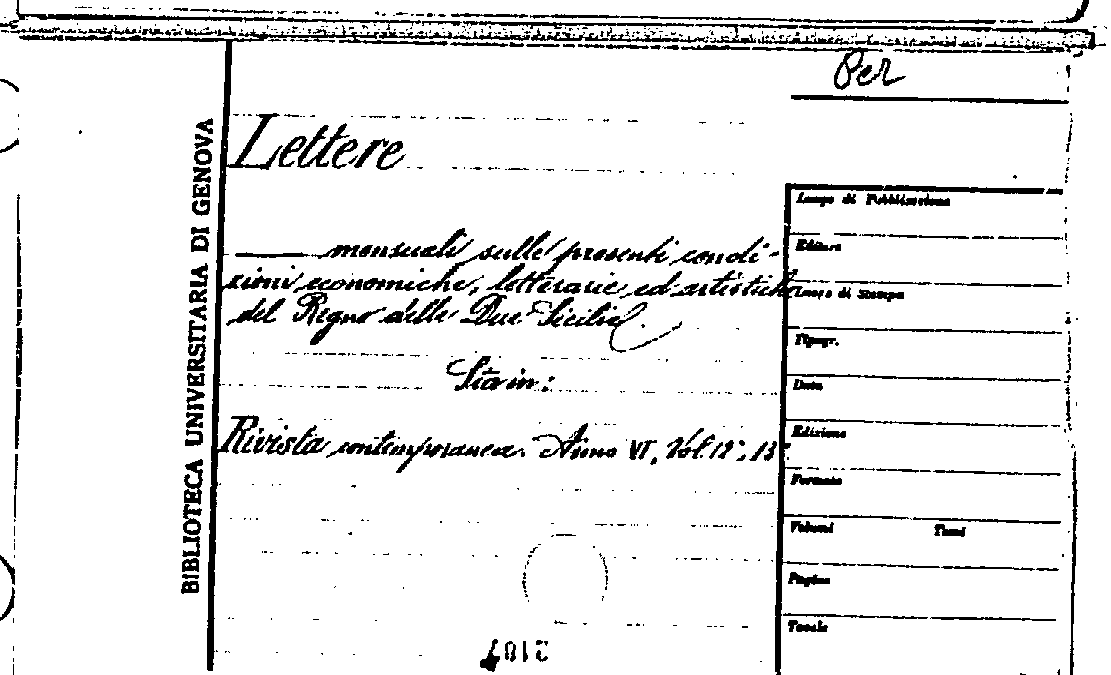 Per
BIBLIOTECA UNIVERSITARIA DI GENOVA
Lettere
____ mensuali sulle presenti condi-
zioni economiche, letterarie ed artistiche
del Regno delle Due Sicilie.
Sta in:
Rivista contemporanea. Anno VI, Vol. 12°, 13°
Luogo di Pubblicazione
Editore
Luogo di Stampa
Tipogr.
Data
Edizione
Formato
Volumi Tomi
Pagine
Tavole